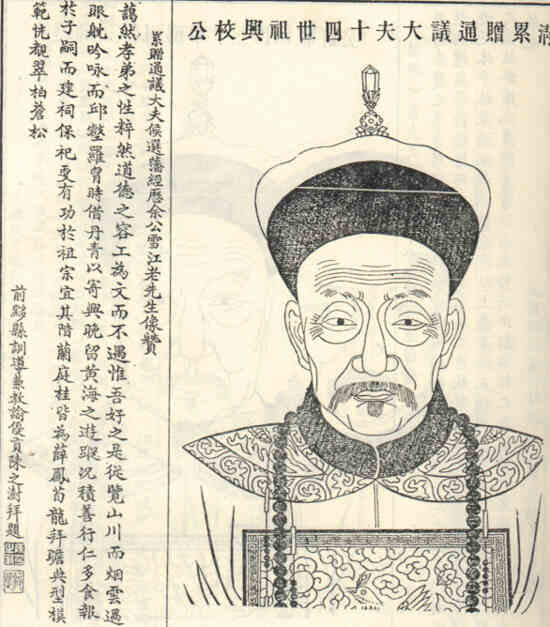 清累贈通議大夫十四世祖興校公
累贈通議大夫候選藩經歷余公雪江老先生像贊
藹然孝弟之性粹然道德之容工為文而不遇惟吾好之是從覽山川而烟雲過
眼躭吟咏而邱壑羅胷時借丹青以寄興晚留黃海之遊蹤況積善行仁多食報
於子嗣而建祠保祀更有功於祖宗宜其階蘭庭桂皆為薛鳳荀龍拜瞻典型模
範恍覩翠柏蒼松
前黟縣訓導兼教諭優貢陳之澍拜題